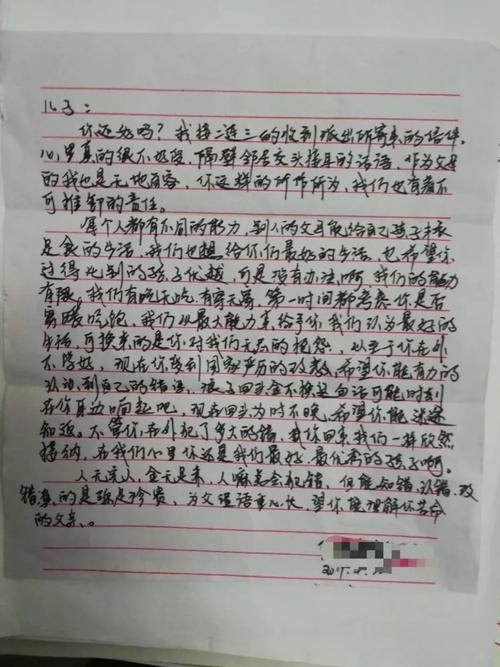 儿子：
你还好吗？我接二连三的收到派出所寄来的信件。
心里真的很不好受，隔壁邻居交头接耳的话语，作为父母
的我也是无地自容，你这样的所作所为，我们也有着不
可推卸的责任。
每个人都有不同的能力，别人的父母能给自己孩子丰衣
足食的生活，我们也想给你们最好的生活，也希望你
过得比别的孩子优越，可是没有办法啊，我们的能力
有限，我们有吃无吃，有穿无穿，第一时间都考虑你是否
穿暖吃饱，我们以最大能力来给予你我们认为最好的
生活，可换来的是你对我们无尽的抱怨，以至于你在外
不学好，现在你受到国家严厉的改教，希望你能有力的
认识到自己的错误，浪子回头金不换这句话可能时刻
在你耳边响起吧，现在回头为时不晚，希望你能迷途
知返。不管你在外犯了多大的错，我你回来我们一样欣然
接纳，在我们心里你还是我们最好、最优秀的孩子啊。
人无完人，金无足赤，人嘛总会犯错，但能知错、认错、改
错真的是弥足珍贵，为父语重心长，望你能理解你苦命
的父亲。